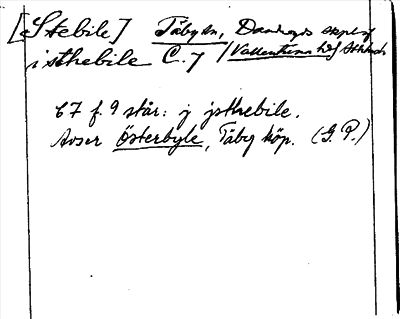 [Stebile] Täby sn, Danderyds skeppsl
i sthebile C. 7 / Vallentuna hd Attunda
C7 f. 9 står: j jsthebile.
Avser Österbyle, Täby köp. (G. P.)